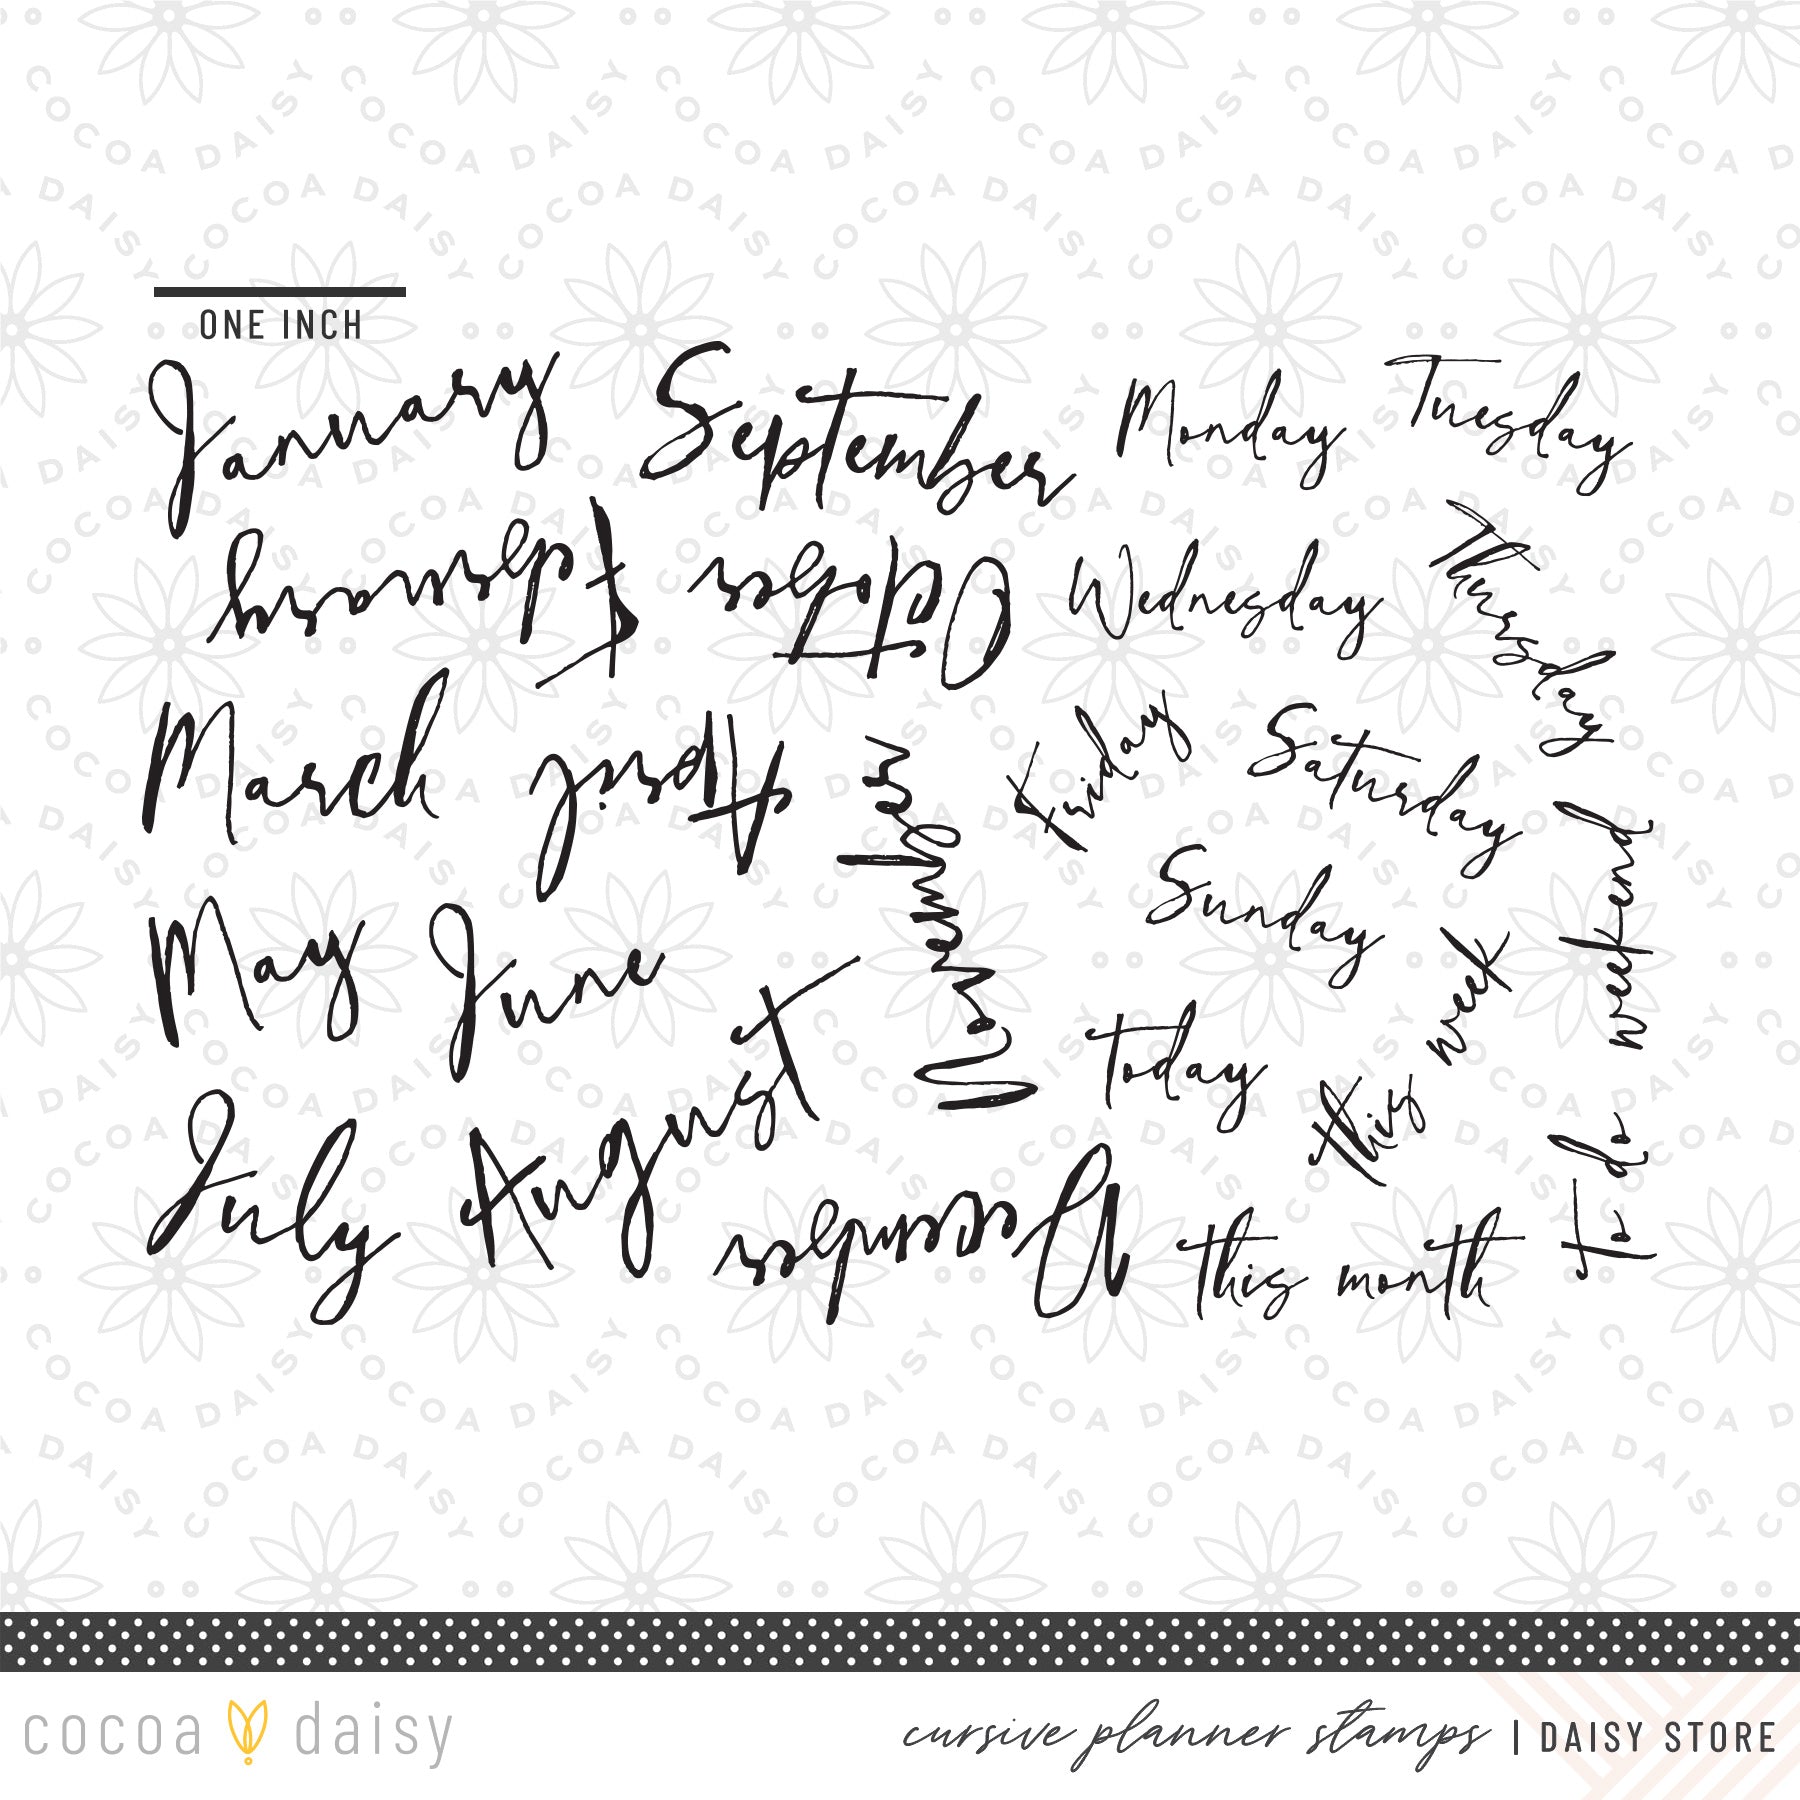 ONE INCH
January
September
Monday
Tuesday
February
October
Wednesday
Thursday
March
April
November
Friday
Saturday
May
June
Sunday
weekend
July
August
Today
this week
December
this month
to do
cocoa daisy
cursive planner stamps | DAISY STORE
COCOA DAISY